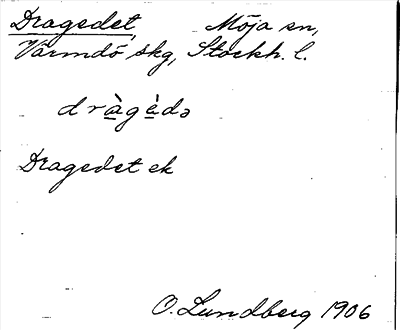 Dragedet, Möja sn,
Värmdö skg, Stockh. l.
dràgèdə
Dragedet ek
O. Lundberg 1906